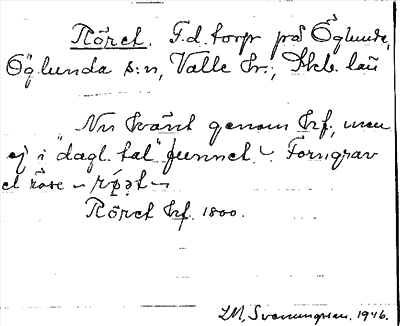 Röret. F.d. torp på Öglunda,
Öglunda s:n, Valle hr., Skb. län
"Nu känt genom krf., men
ej i "dagl. tal" funnet. Forngrav
et röse
Röret krf. 1800.
LM, Svenungsson. 1946.